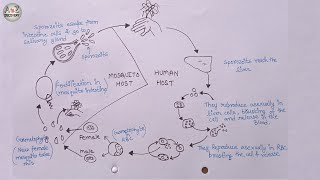 Sporozoite escape from
intestine wall & go to
salivary gland
Sporozoite
Fertilization in
mosquito intestine
MOSQUITO
HOST
HUMAN
HOST
Sporozoite reach the
liver
They reproduce asexually in
liver cells, bursting the
cell and release in the
blood.
They reproduce asexually in RBC,
bursting the cell & release
Gametocytes
Female
Male
(New female
mosquito take